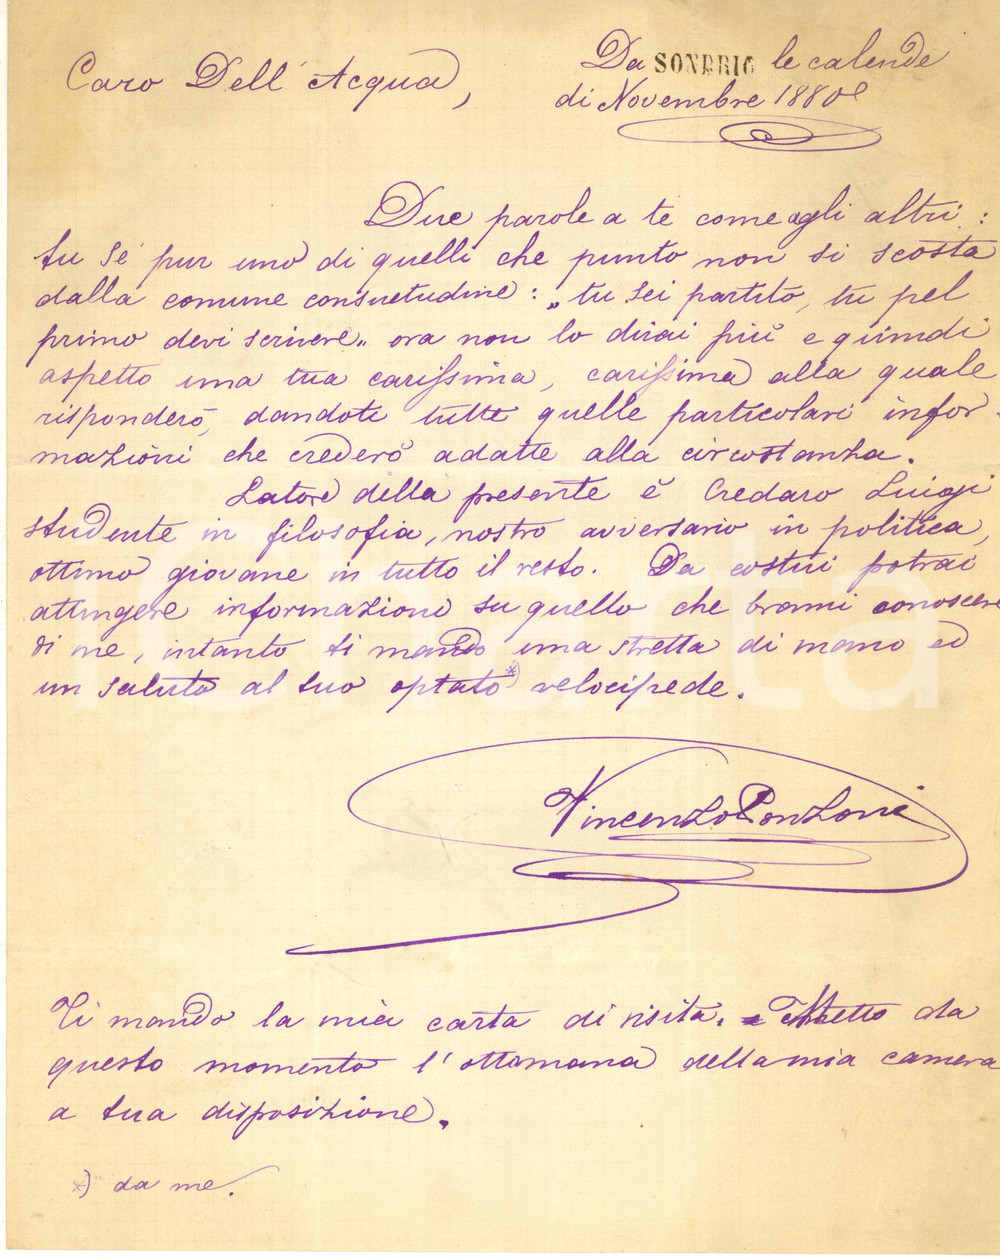 Caro Dell'Acqua,
Da SONDRIO le calende
di Novembre 1880
Due parole a te come agli altri:
tu sé pur uno di quelli che punto non si scosta
dalla comune consuetudine: „tu sei partito, tu pel
primo devi scrivere„ ora non lo dirai più e quindi
aspetto una tua carissima, carissima alla quale
risponderò, dandoti tutte quelle particolari infor-
mazioni che crederò adatte alla circostanza.
Latore della presente è Credaro Luigi
studente in filosofia, nostro avversario in politica,
ottimo giovane in tutto il resto. Da costui potrai
attingere informazioni su quello che brami conoscere
di me, intanto ti mando una stretta di mano ed
un saluto al tuo optato *) velocipede.
Vincenzo Ponzoni
Ti mando la mia carta di visita. Metto da
questo momento l'ottomana della mia camera
a tua disposizione.
*) da me.
iCharta